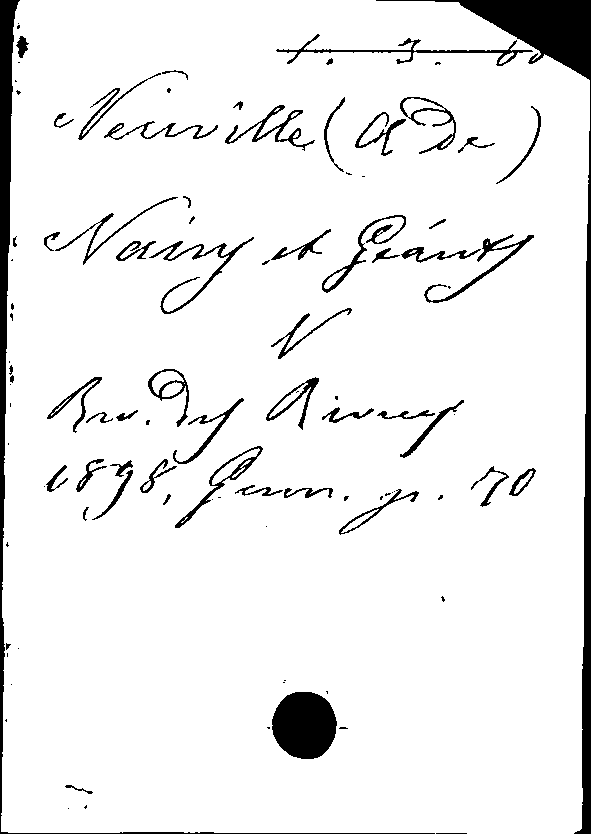 1. 3. 60
Neuville (A De)
Nains et Géants
V
Rev. Des Revues
1898, Janv. p. 70